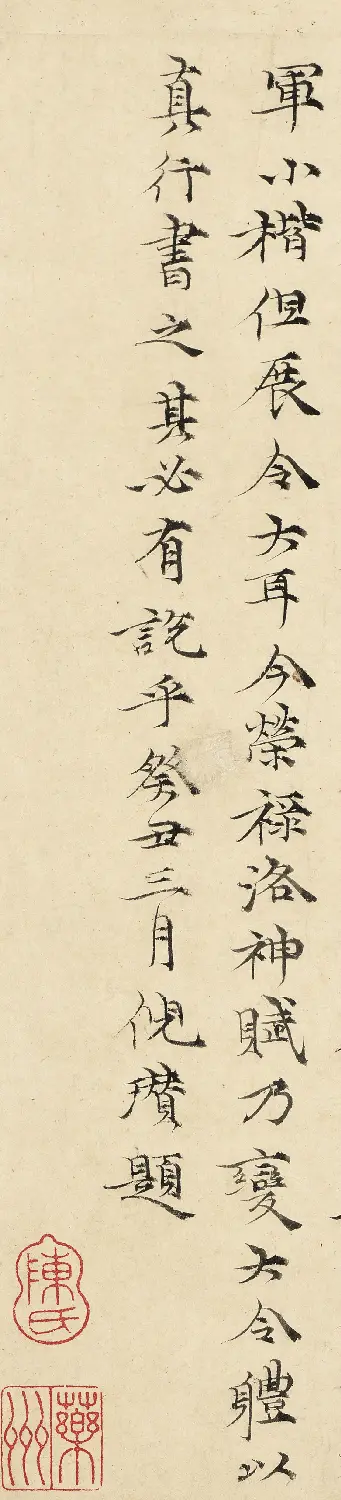 軍小楷但展令大耳今榮祿洛神賦乃變大令體以
真行書之其必有說乎癸丑三月倪瓚題
陳氏
藥洲